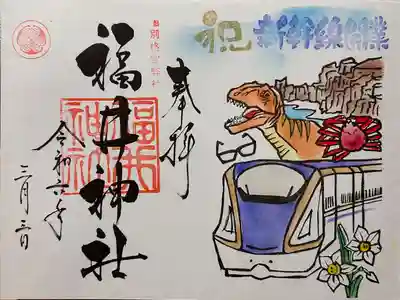 祝 新幹線開業
奉拝
別格官幣社
福井神社
福井神社
令和六年
三月三日